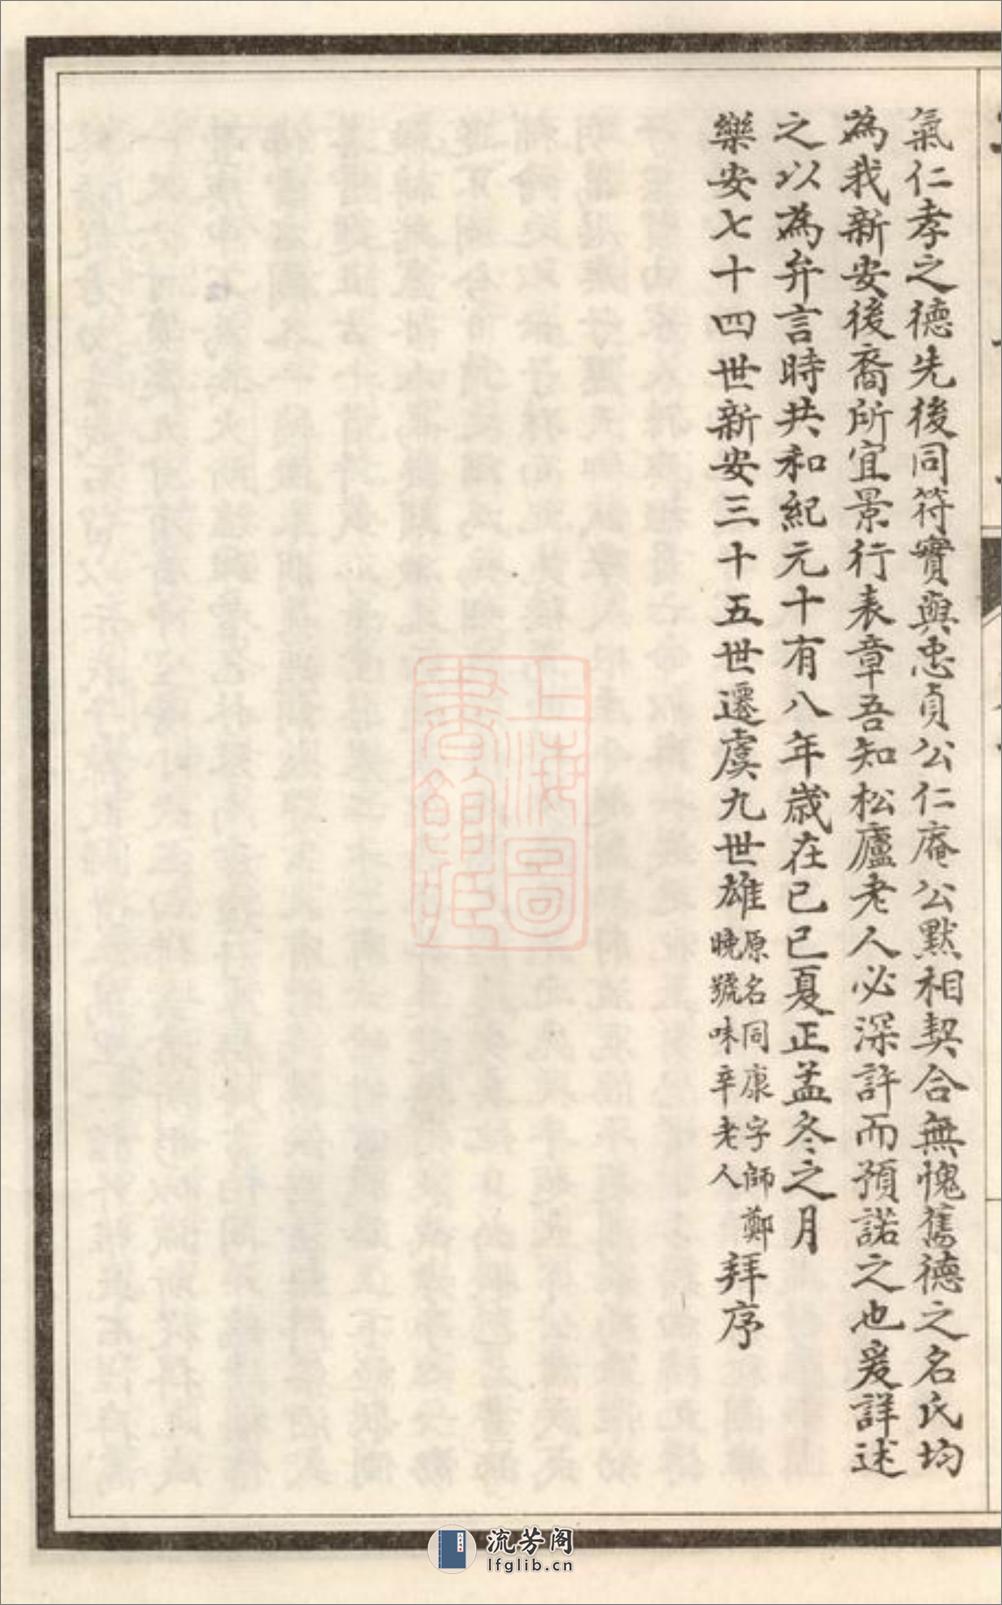 氣仁孝之德先後同符實與忠貞公仁庵公默相契合無愧舊德之名氏均
為我新安後裔所宜景行表章吾知松廬老人必深許而預諾之也爰詳述
之以為弁言時共和紀元十有八年歲在己巳夏正孟冬之月
樂安七十四世新安三十五世遷虞九世雄原名同康字師鄭晚號味辛老人拜序
上海圖書館藏
流芳阁
lfglib.cn